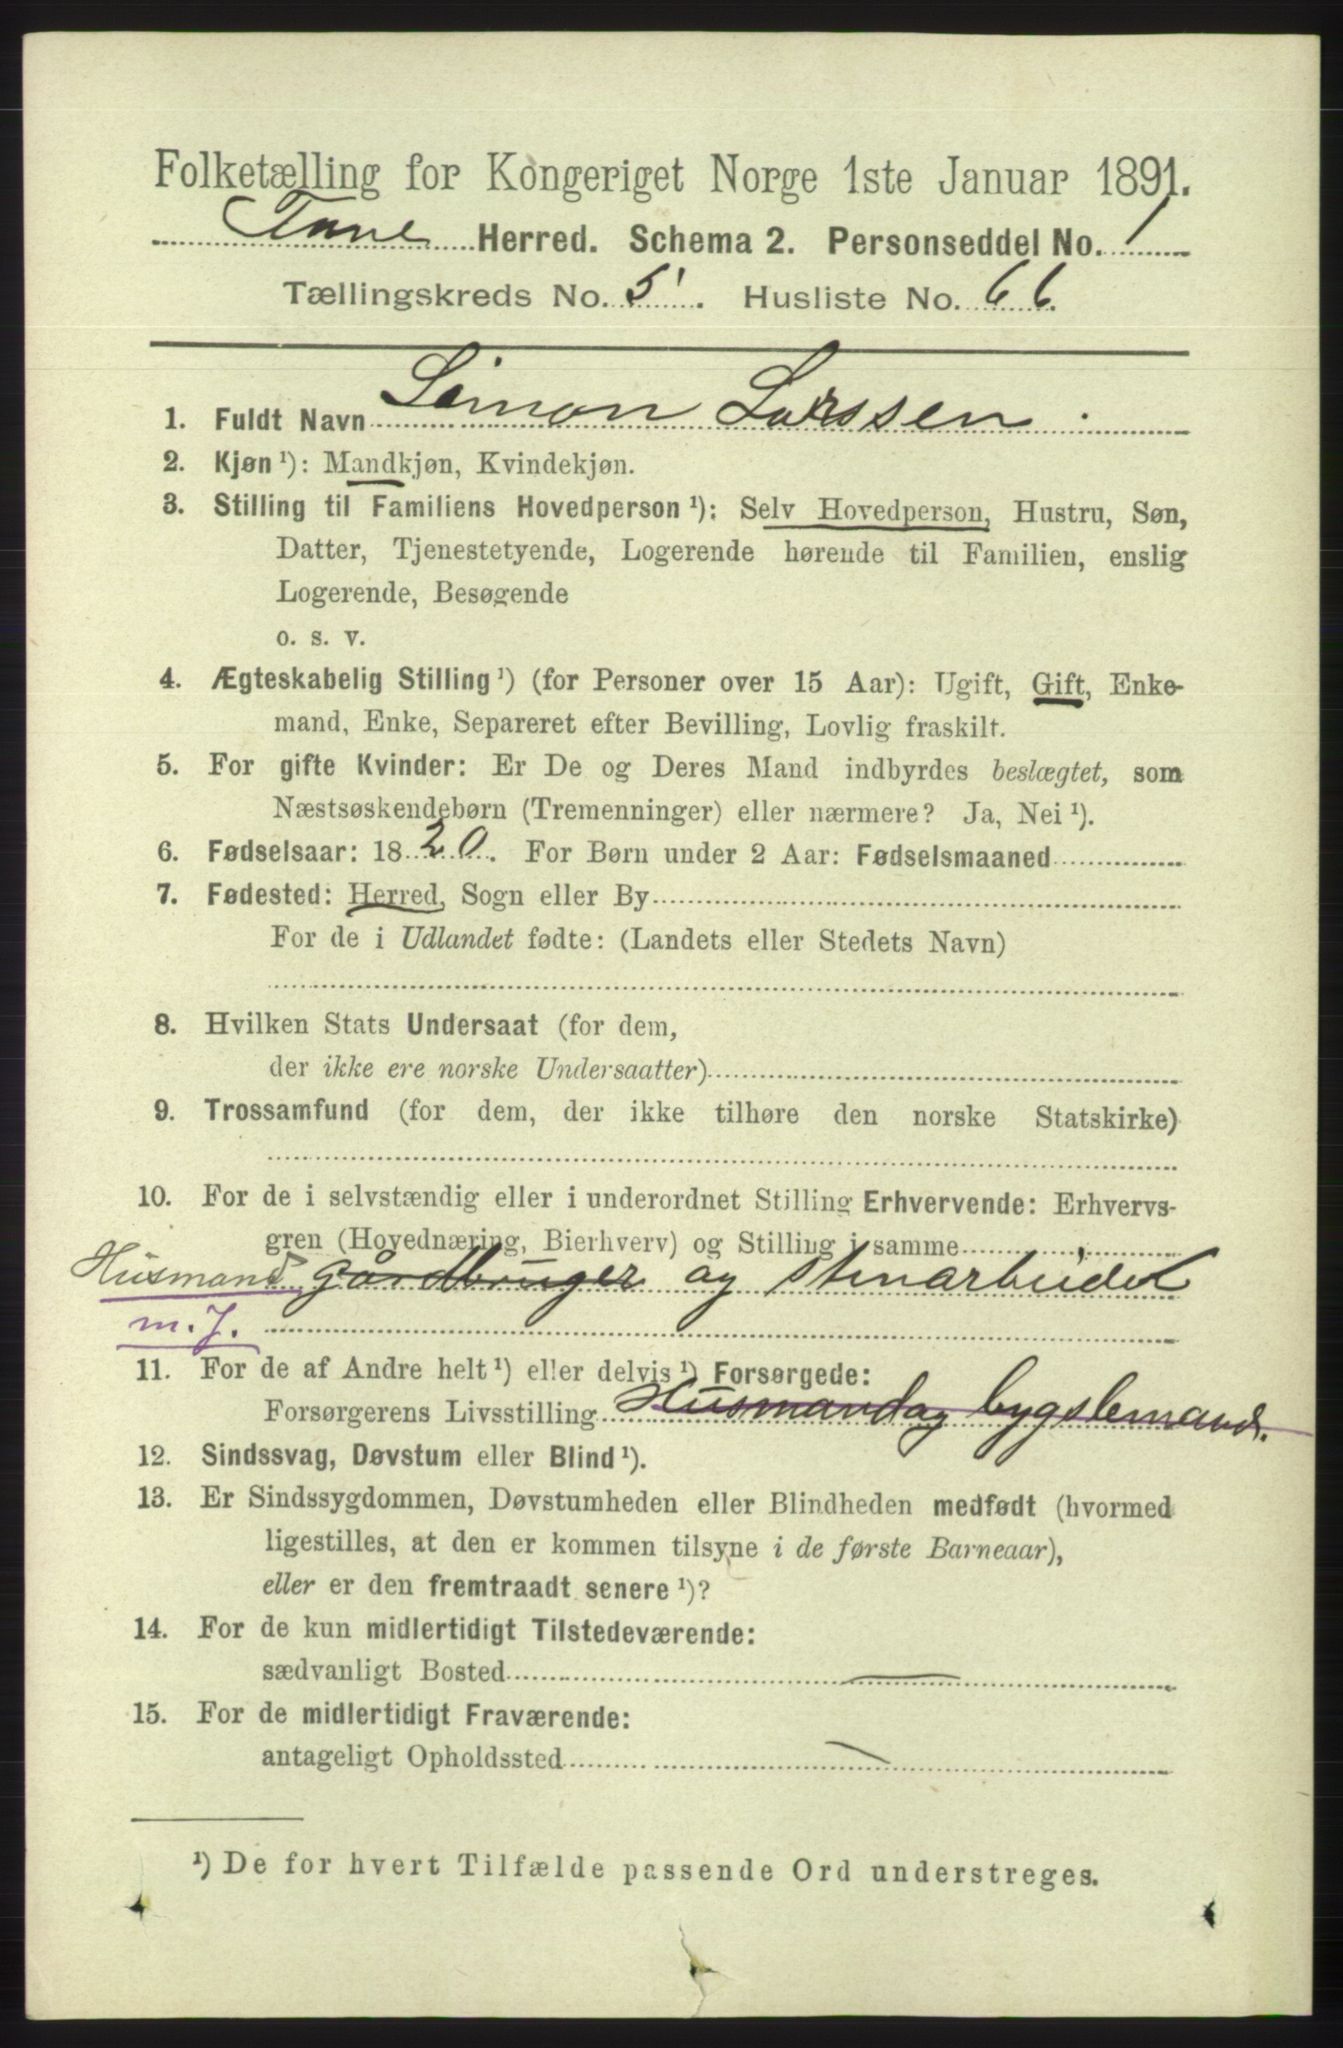 Folketælling for Kongeriget Norge 1ste Januar 1891.
Herred. Schema 2. Personseddel No. 1
Tællingskreds No. 5. Husliste No. 66.
1. Fuldt Navn Simon Larssen.
2. Kjøn ¹): Mandkjøn, Kvindekjøn.
3. Stilling til Familiens Hovedperson ¹): Selv Hovedperson, Hustru, Søn,
Datter, Tjenestetyende, Logerende hørende til Familien, enslig
Logerende, Besøgende
o. s. v.
4. Ægteskabelig Stilling ¹) (for Personer over 15 Aar): Ugift, Gift, Enke-
mand, Enke, Separeret efter Bevilling, Lovlig fraskilt.
5. For gifte Kvinder: Er De og Deres Mand indbyrdes beslægtet, som
Næstsøskendebørn (Tremenninger) eller nærmere? Ja, Nei ¹).
6. Fødselsaar: 1820. For Børn under 2 Aar: Fødselsmaaned
7. Fødested: Herred, Sogn eller By
For de i Udlandet fødte: (Landets eller Stedets Navn)
8. Hvilken Stats Undersaat (for dem,
der ikke ere norske Undersaatter)
9. Trossamfund (for dem, der ikke tilhøre den norske Statskirke)
10. For de i selvstændig eller i underordnet Stilling Erhvervende: Erhvervs-
gren (Hovednæring, Bierhverv) og Stilling i samme
Husmand gårdbruger og stenarbeidet
m. J.
11. For de af Andre helt ¹) eller delvis ¹) Forsørgede:
Forsørgerens Livsstilling Husmand og bygslemand.
12. Sindssvag, Døvstum eller Blind ¹).
13. Er Sindssygdommen, Døvstumheden eller Blindheden medfødt (hvormed
ligestilles, at den er kommen tilsyne i de første Barneaar),
eller er den fremtraadt senere ¹)?
14. For de kun midlertidigt Tilstedeværende:
sædvanligt Bosted
15. For de midlertidigt Fraværende:
antageligt Opholdssted
¹) De for hvert Tilfælde passende Ord understreges.